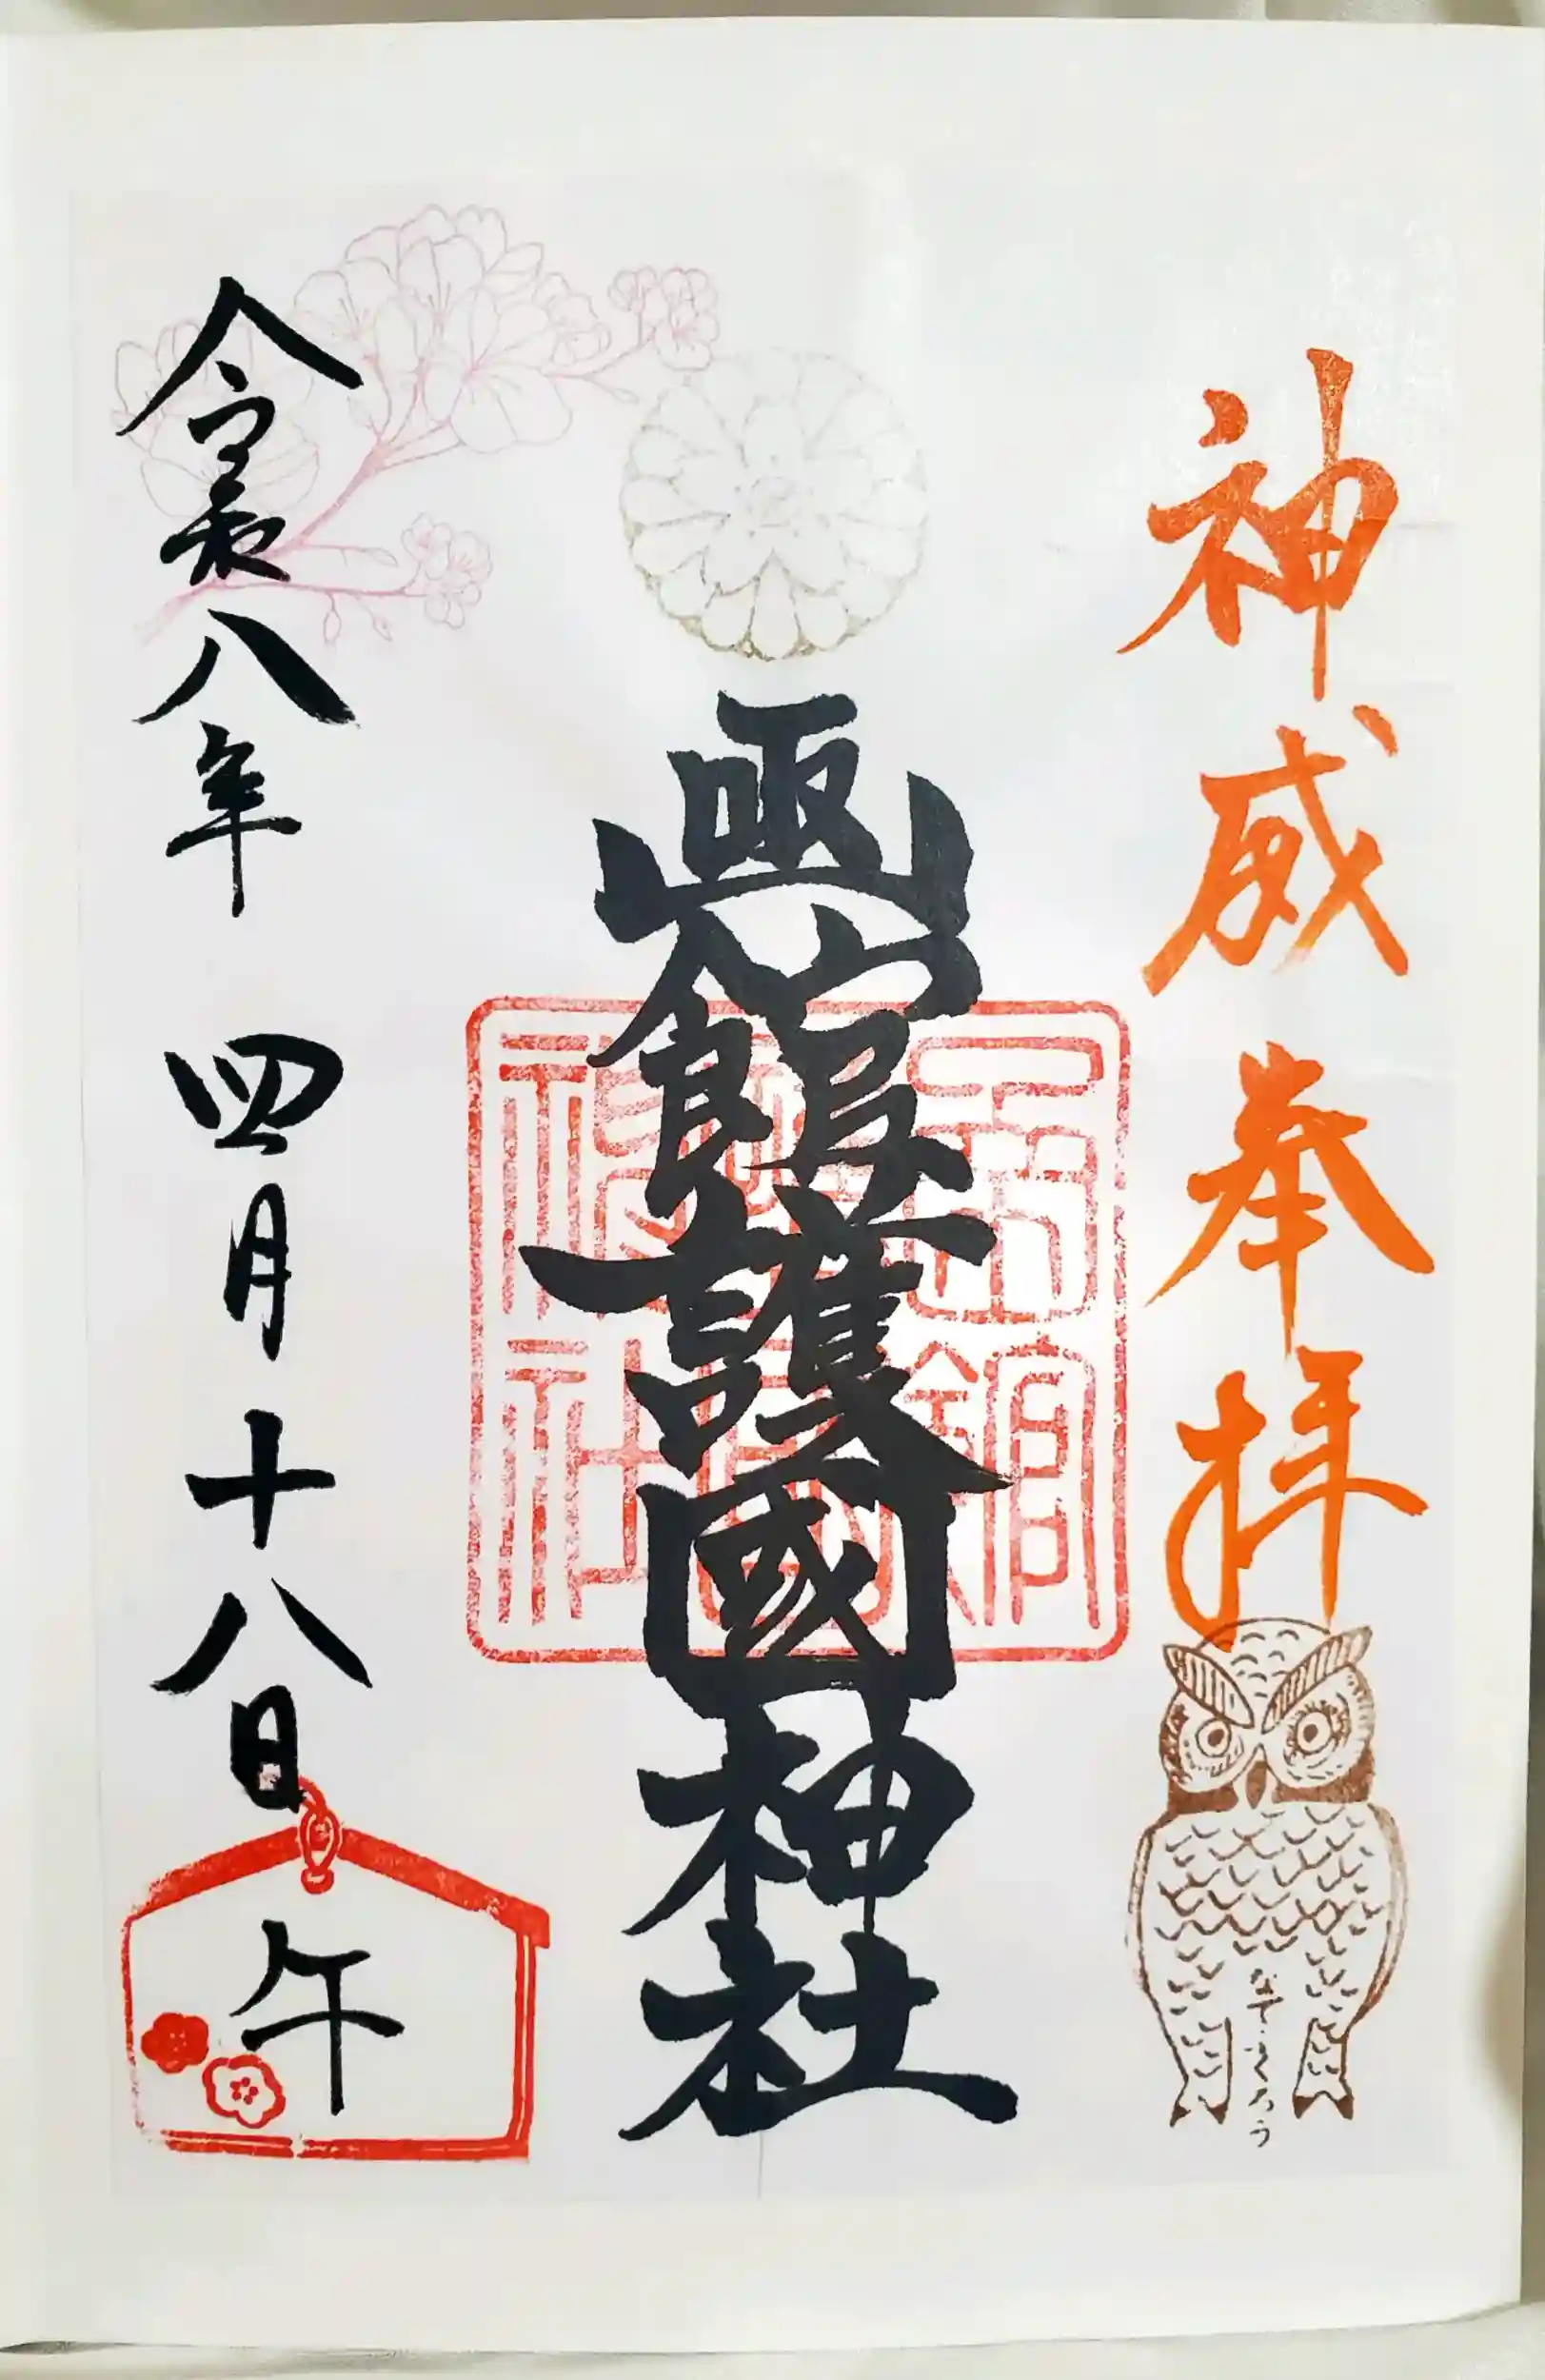 神威奉拝
なでふくろう
凾館護國神社
函館護國神社
令和八年 四月十八日
午